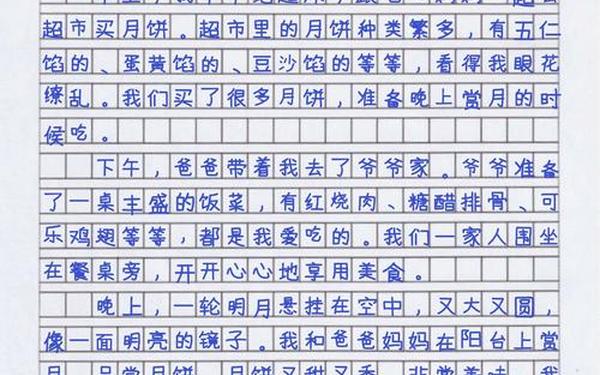 超市买月饼。超市里的月饼种类繁多，有五仁
馅的、蛋黄馅的、豆沙馅的等等，看得我眼花
缭乱。我们买了很多月饼，准备晚上赏月的时
候吃。
下午，爸爸带着我去了爷爷家。爷爷准备
了一桌丰盛的饭菜，有红烧肉、糖醋排骨、可
乐鸡翅等等，都是我爱吃的。我们一家人围坐
在餐桌旁，开开心心地享用美食。
晚上，一轮明月悬挂在空中，又大又圆，
像一面明亮的镜子。我和爸爸妈妈在阳台上赏
月，品尝月饼，月饼又甜又香，非常美味。我